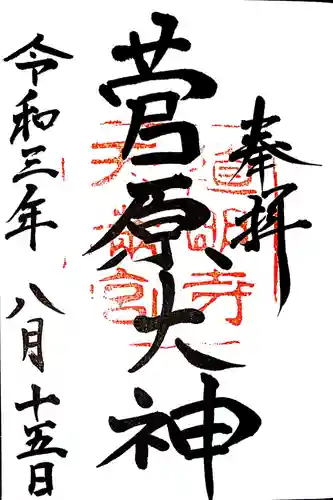 奉拝
菅原大神
道明寺
天満宮
令和三年八月十五日